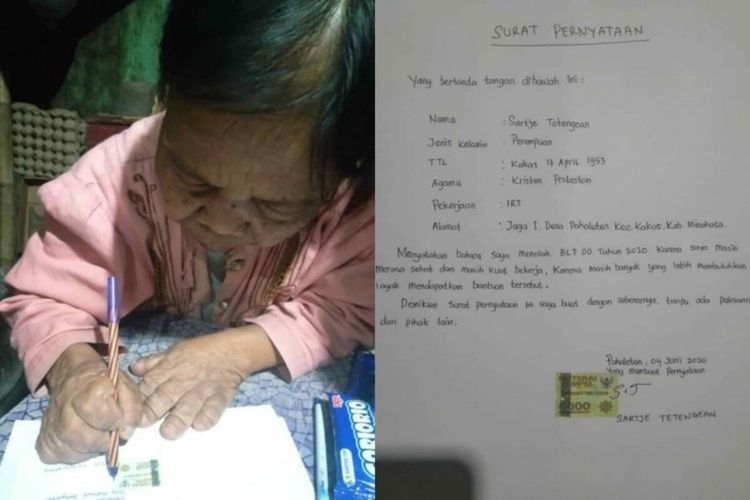 SURAT PERNYATAAN
Yang bertanda tangan dibawah ini :
Nama : Sartje Tetengean
Jenis Kelamin : Perempuan
TTL : Kakas 17 April 1953
Agama : Kristen Protestan
Pekerjaan : IRT
Alamat : Jaga I. Desa Pahaleten. Kec Kakas. Kab. Minahasa.
Menyatakan bahwa saya menolak BLT DD Tahun 2020 karena saya masih
merasa sehat dan masih kuat bekerja, Karena masih banyak yang lebih membutuhkan
layak mendapatkan bantuan tersebut.
Demikian Surat pernyataan ini saya buat dengan sebenarnya, tanpa ada paksaan
dari pihak lain.
Pahaleten, 04 Juni 2020
Yang membuat Pernyataan
TERAI
MPEL
6000
S.T
SARTJE TETENGEAN